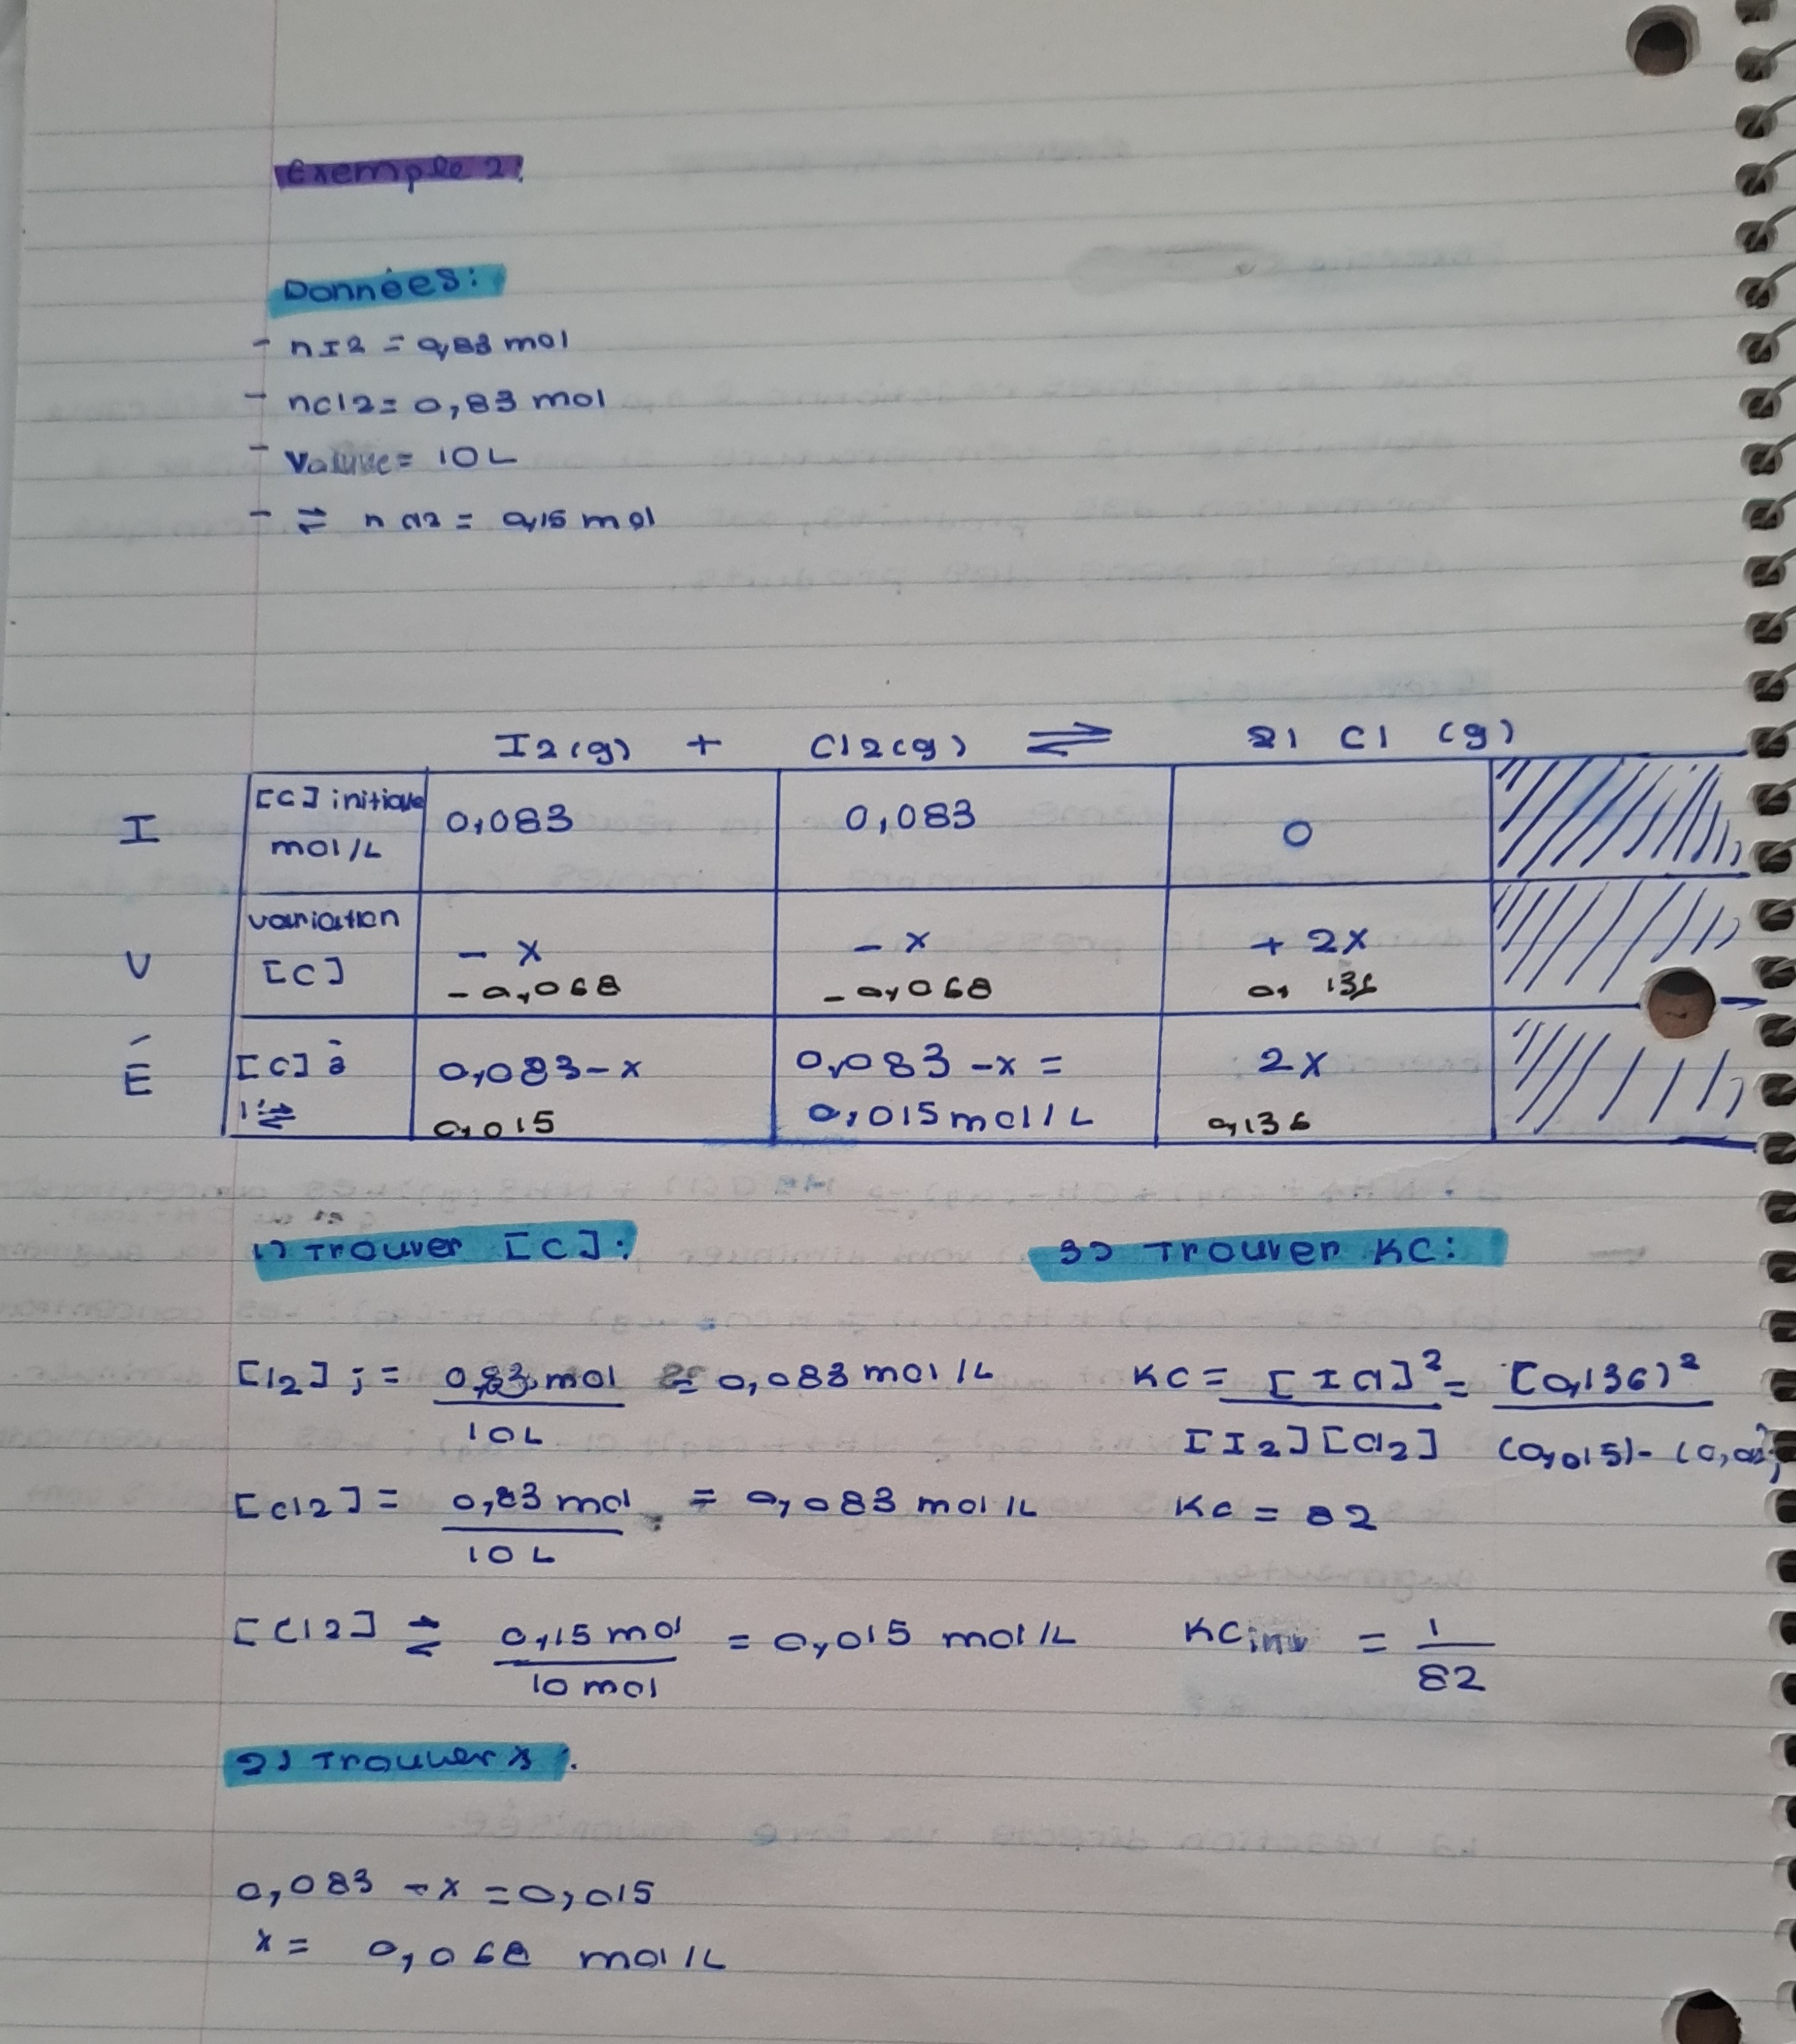 Exemple 2:
Données:
- nI2 = 0,83 mol
- nCl2 = 0,83 mol
- Volume = 10 L
- ⇌ n Cl2 = 0,15 mol
I2(g) + Cl2(g) ⇌ 2I Cl (g)
I [C] initiale mol/L 0,083 0,083 0
V variation [C] - x - x + 2x
- 0,068 - 0,068 0,136
É [C] à l'⇌ 0,083-x 0,083 -x = 2x
0,015 0,015 mol/L 0,136
1) Trouver [C]:
[I2]i = 0,83 mol / 10L = 0,083 mol/L
[Cl2] = 0,83 mol / 10 L = 0,083 mol/L
[Cl2] ⇌ 0,15 mol / 10 mol = 0,015 mol/L
2) Trouver x:
0,083 - x = 0,015
x = 0,068 mol/L
3) Trouver KC:
KC = [ICl]² / [I2][Cl2] = [0,136)² / (0,015)-(0,0
Kc = 82
KCinv = 1 / 82